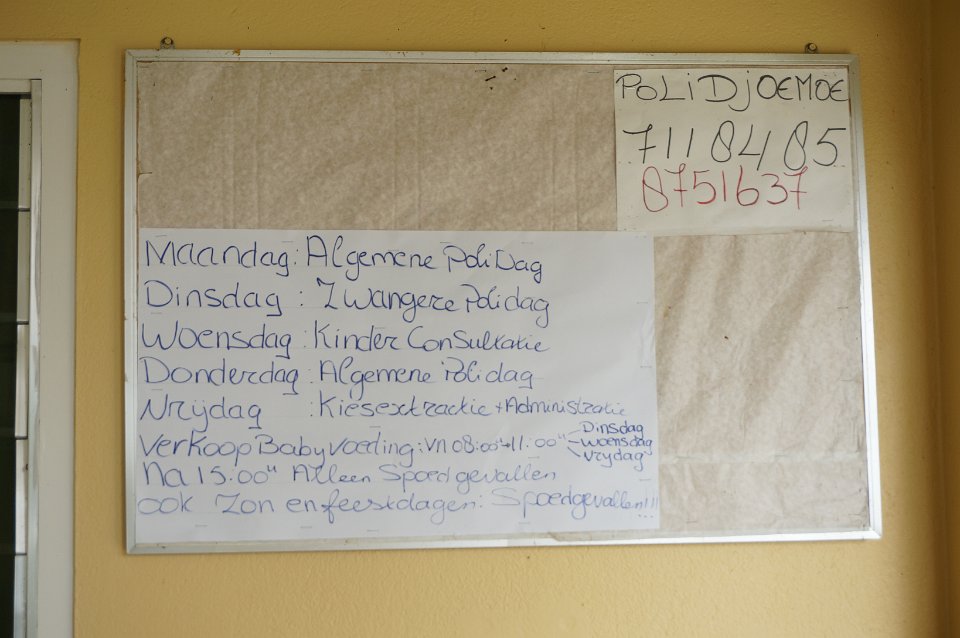 POLI DJOEMOE
7118485
8751637
Maandag: Algemene PoliDag
Dinsdag : Zwangere Polidag
Woensdag : Kinder Consultatie
Donderdag : Algemene Polidag
Vrijdag : Kiesextractie + Administratie
Verkoop Babyvoeding: vn 08:00u-11:00u - Dinsdag
- Woensdag
- Vrydag
Na 15:00u Alleen Spoedgevallen
ook Zon en feestdagen: Spoedgevallen!!!